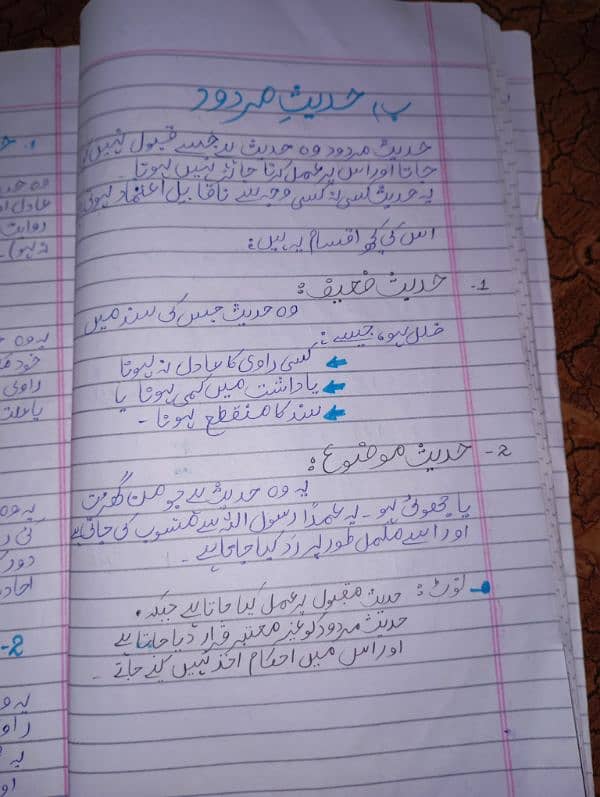 ب) حدیثِ مردود
حدیث مردود وہ حدیث ہے جسے قبول نہیں کیا
جاتا اور اس پر عمل کرنا جائز نہیں ہوتا ۔
یہ حدیث کسی نہ کسی وجہ سے ناقابل اعتماد ہوتی
اس کی کچھ اقسام یہ ہیں:
1- حدیث ضعیف:
وہ حدیث جس کی سند میں
خلل ہو، جیسے:
کسی راوی کا عادل نہ ہونا
یاداشت میں کمی ہونا یا
سند کا منقطع ہونا -
2- حدیث موضوع:
یہ وہ حدیث ہے جو من گھڑت
یا جھوٹی ہو - یہ عمداً رسول اللہ سے منسوب کی جاتی ہے
اور اسے مکمل طور پر رد کیا جاتا ہے -
نوٹ: حدیث مقبول پر عمل کیا جاتا ہے جبکہ
حدیث مردود کو غیر معتبر قرار دیا جاتا ہے
اور اس میں احکام اخذ نہیں کیے جاتے -